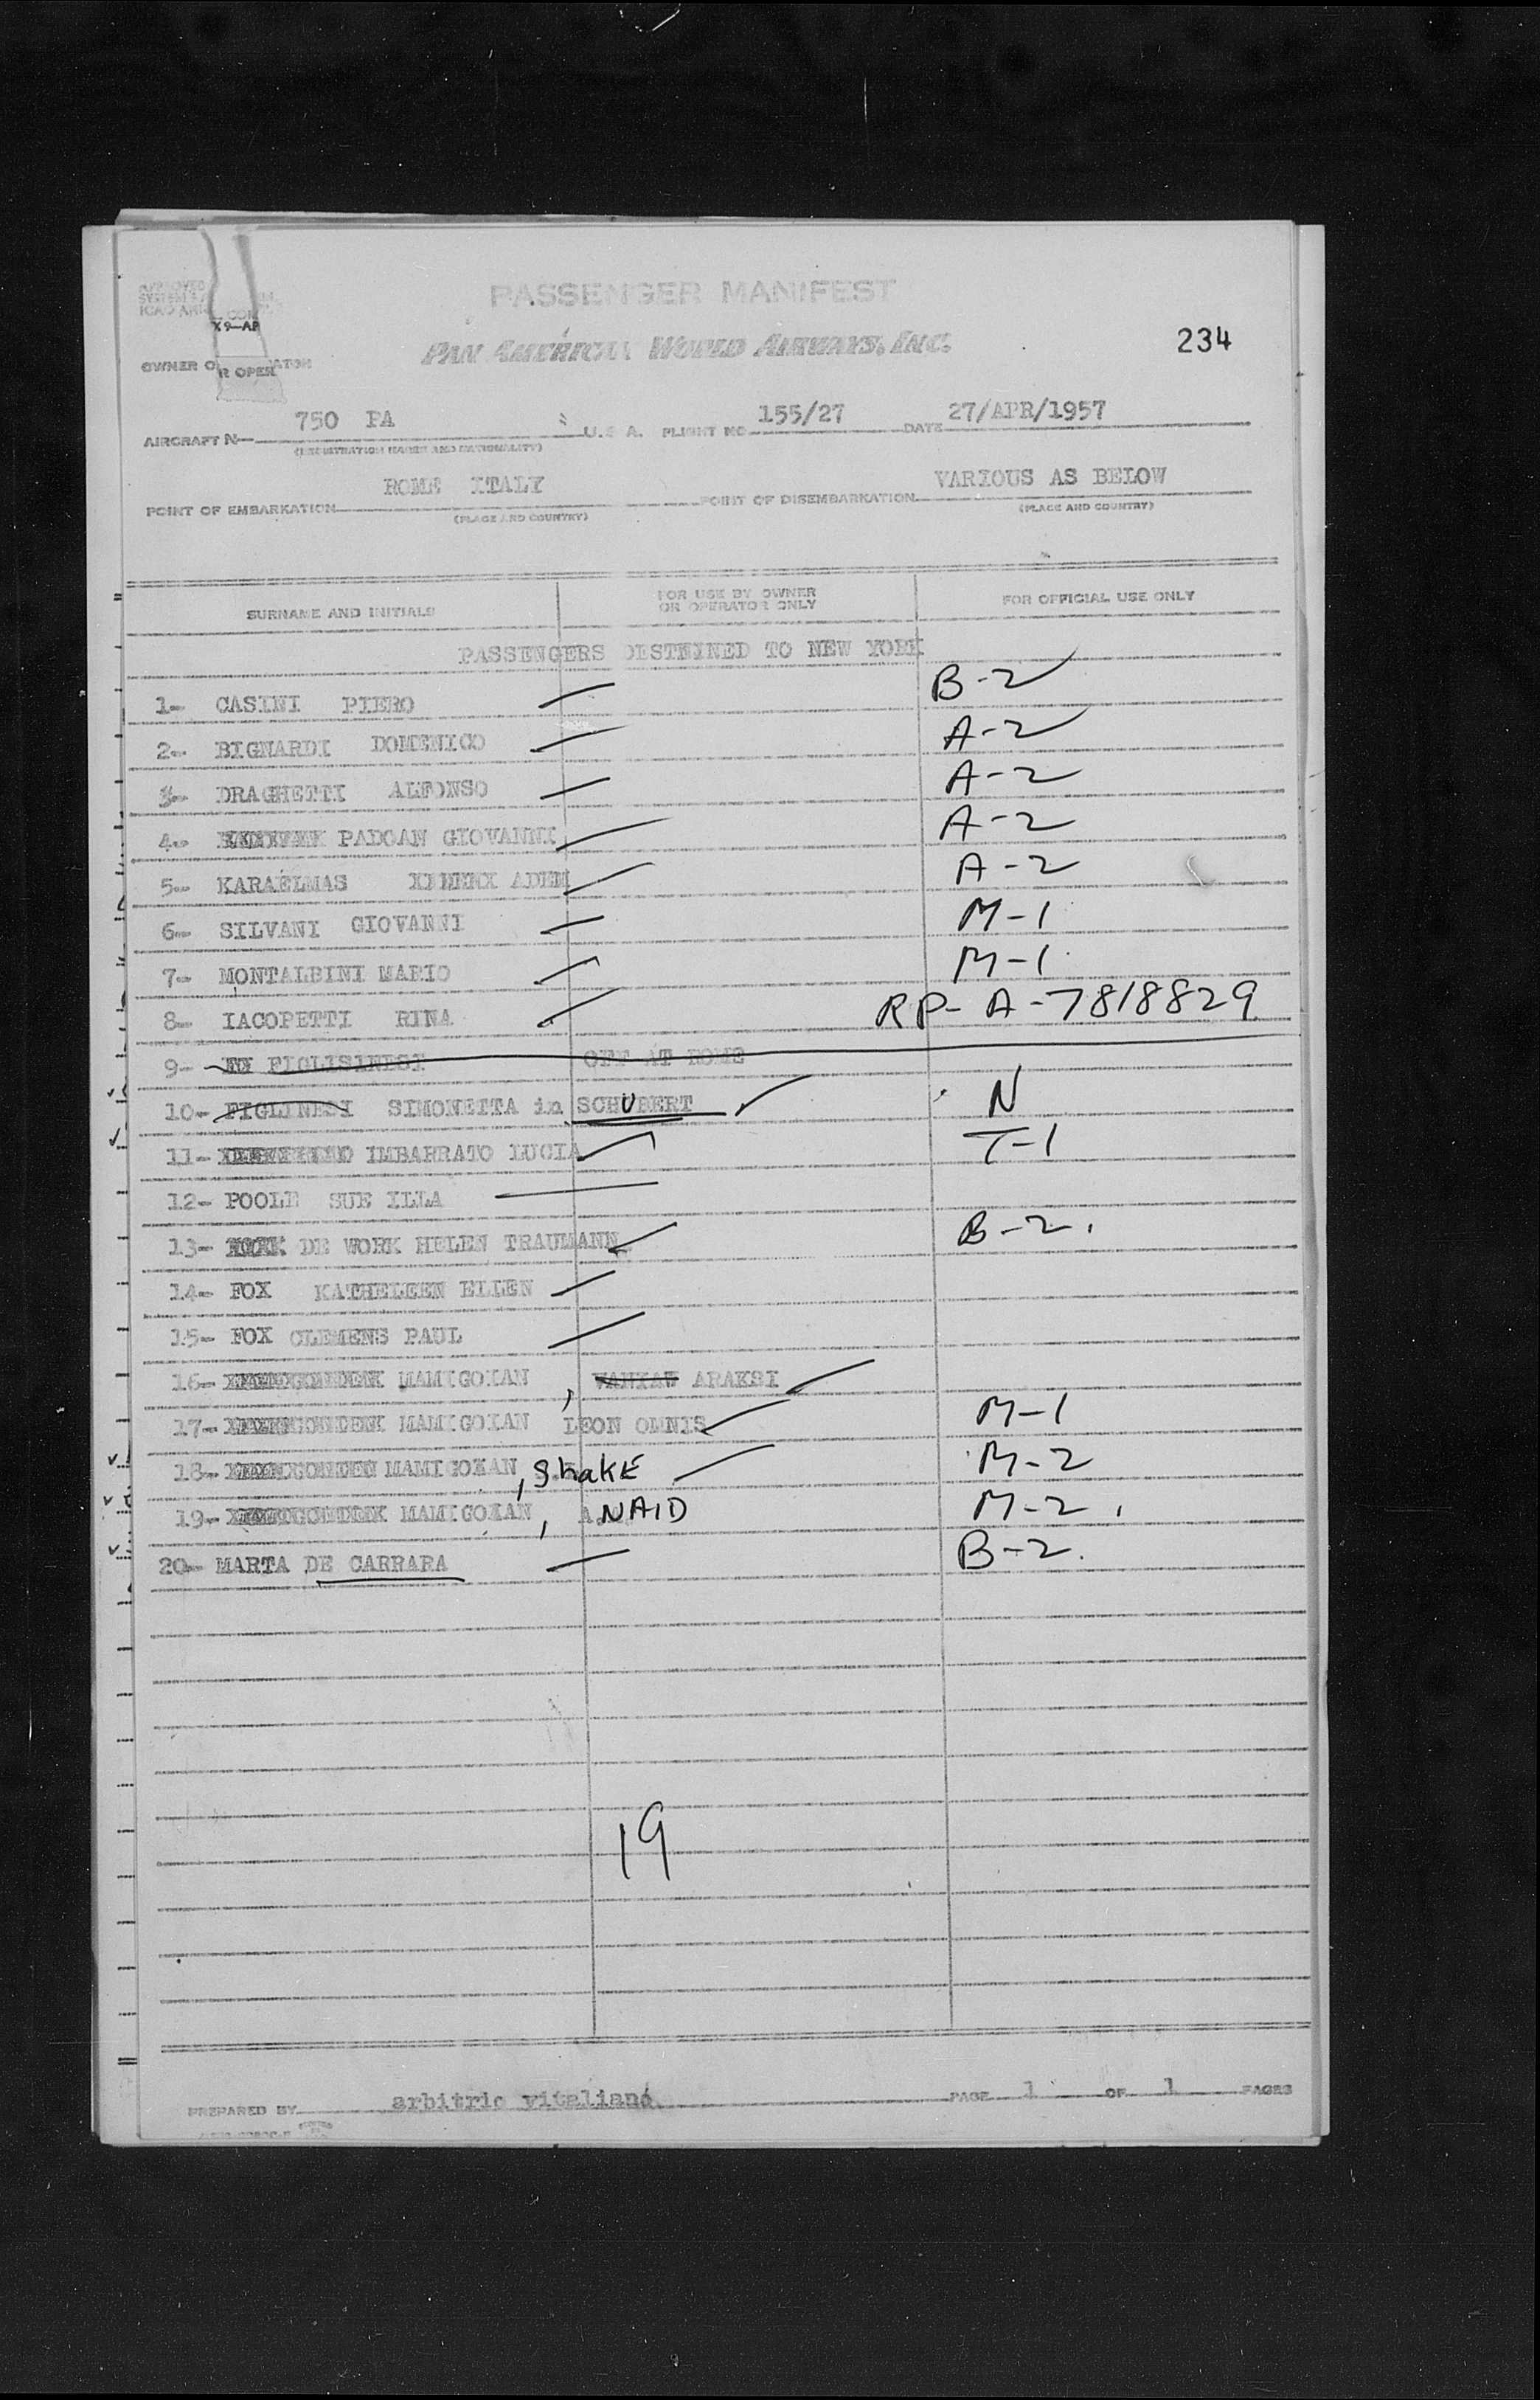 PASSENGER MANIFEST
PAN AMERICAN WORLD AIRWAYS, INC.
234
X9-AP
OWNER O
R OPER
AIRCRAFT N— 750 PA U.S.A. FLIGHT NO. 155/27 DATE 27/APR/1957
(REGISTRATION MARKS AND NATIONALITY)
POINT OF EMBARKATION ROME ITALY POINT OF DISEMBARKATION VARIOUS AS BELOW
(PLACE AND COUNTRY) (PLACE AND COUNTRY)
SURNAME AND INITIALS FOR USE BY OWNER OR OPERATOR ONLY FOR OFFICIAL USE ONLY
PASSENGERS DISTNINED TO NEW YORK
1- CASINI PIERO B-2
2- BIGNARDI DOMENICO A-2
3- DRAGHETTI ALFONSO A-2
4- PADOAN GIOVANNI A-2
5- KARAELMAS ADEM A-2
6- SILVANI GIOVANNI M-1
7- MONTALBINI MARIO M-1
8- IACOPETTI RINA RP-A-7818829
9- FIGLISINESI OFF AT ROME
10- FIGLINESI SIMONETTA in SCHUBERT N
11- IMBARRATO LUCIA T-1
12- POOLE SUE ILLA
13- DE WORK HELEN TRAUMANN B-2.
14- FOX KATHELEEN ELLEN
15- FOX CLEMENS PAUL
16- MAMIGOXAN, ARAKSI
17- MAMIGOXAN LEON OMNIS M-1
18- MAMIGOXAN, ShaKE M-2
19- MAMIGOXAN, NAID M-2
20- MARTA DE CARRARA B-2.
19
PREPARED BY arbitrio vitaliano PAGE 1 OF 1 PAGES